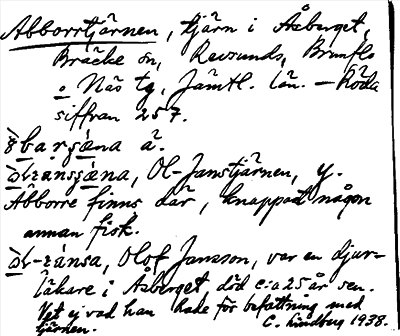 Abborrtjärnen, tjärn i Åsberget,
Bräcke sn, Revsunds, Brunflo
o Näs tg, Jämtl. län. — Röda
siffran 257.
a.
Ol-Janstjärnen, y.
Abborre finns där, knappast någon
annan fisk.
Olof Jansson, var en djur-
läkare i Åsberget, död c:a 25 år sen.
Vet ej vad han hade för befattning med
tjärnen. C. Lindberg 1938.